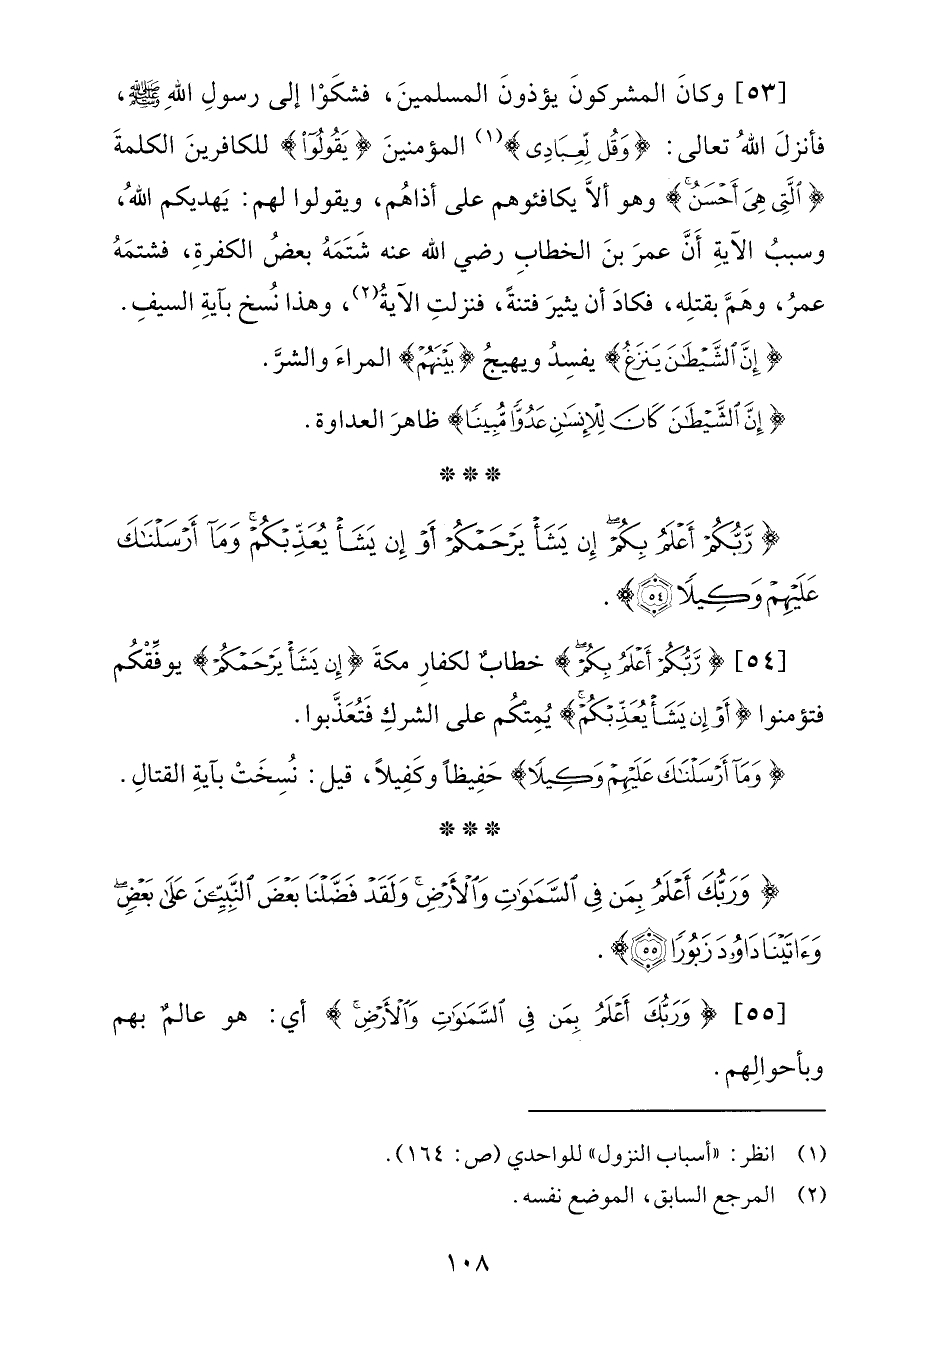 [٥٣] وكانَ المشركونَ يؤذونَ المسلمينَ، فشكَوْا إلى رسولِ اللهِ ﷺ،
فأنزلَ اللهُ تعالى: ﴿وَقُل لِّعِبَادِى﴾(١) المؤمنينَ ﴿يَقُولُواْ﴾ للكافرينَ الكلمةَ
﴿ٱلَّتِى هِىَ أَحۡسَنُۚ﴾ وهو ألاَّ يكافئوهم على أذاهُم، ويقولوا لهم: يَهديكم اللهُ،
وسببُ الآيةِ أَنَّ عمرَ بنَ الخطابِ رضي الله عنه شَتَمَهُ بعضُ الكفرةِ، فشتمَهُ
عمرُ، وهَمَّ بقتلِه، فكادَ أن يثيرَ فتنةً، فنزلتِ الآيةُ(٢)، وهذا نُسخ بآيةِ السيفِ.
﴿إِنَّ ٱلشَّيۡطَٰنَ يَنزَغُ﴾ يفسِدُ ويهيجُ ﴿بَيۡنَهُمۡ﴾ المراءَ والشرَّ.
﴿إِنَّ ٱلشَّيۡطَٰنَ كَانَ لِلۡإِنسَٰنِ عَدُوّٗا مُّبِينٗا﴾ ظاهرَ العداوة.
* * *
﴿رَّبُّكُمۡ أَعۡلَمُ بِكُمۡۖ إِن يَشَأۡ يَرۡحَمۡكُمۡ أَوۡ إِن يَشَأۡ يُعَذِّبۡكُمۡۚ وَمَآ أَرۡسَلۡنَٰكَ
عَلَيۡهِمۡ وَكِيلٗا ٥٤﴾.
[٥٤] ﴿رَّبُّكُمۡ أَعۡلَمُ بِكُمۡۖ﴾ خطابٌ لكفارِ مكةَ ﴿إِن يَشَأۡ يَرۡحَمۡكُمۡ﴾ يوفِّقْكُم
فتؤمنوا ﴿أَوۡ إِن يَشَأۡ يُعَذِّبۡكُمۡۚ﴾ يُمِتْكُم على الشركِ فَتُعَذَّبوا.
﴿وَمَآ أَرۡسَلۡنَٰكَ عَلَيۡهِمۡ وَكِيلٗا﴾ حَفِيظاً وكَفِيلاً، قيل: نُسِخَتْ بآيةِ القتالِ.
* * *
﴿وَرَبُّكَ أَعۡلَمُ بِمَن فِى ٱلسَّمَٰوَٰتِ وَٱلۡأَرۡضِۚ وَلَقَدۡ فَضَّلۡنَا بَعۡضَ ٱلنَّبِيِّـۧنَ عَلَىٰ بَعۡضٖۖ
وَءَاتَيۡنَا دَاوُۥدَ زَبُورٗا ٥٥﴾.
[٥٥] ﴿وَرَبُّكَ أَعۡلَمُ بِمَن فِى ٱلسَّمَٰوَٰتِ وَٱلۡأَرۡضِۚ﴾ أي: هو عالمٌ بهم
وبأحوالِهم.
(١) انظر: «أسباب النزول» للواحدي (ص: ١٦٤).
(٢) المرجع السابق، الموضع نفسه.
١٠٨